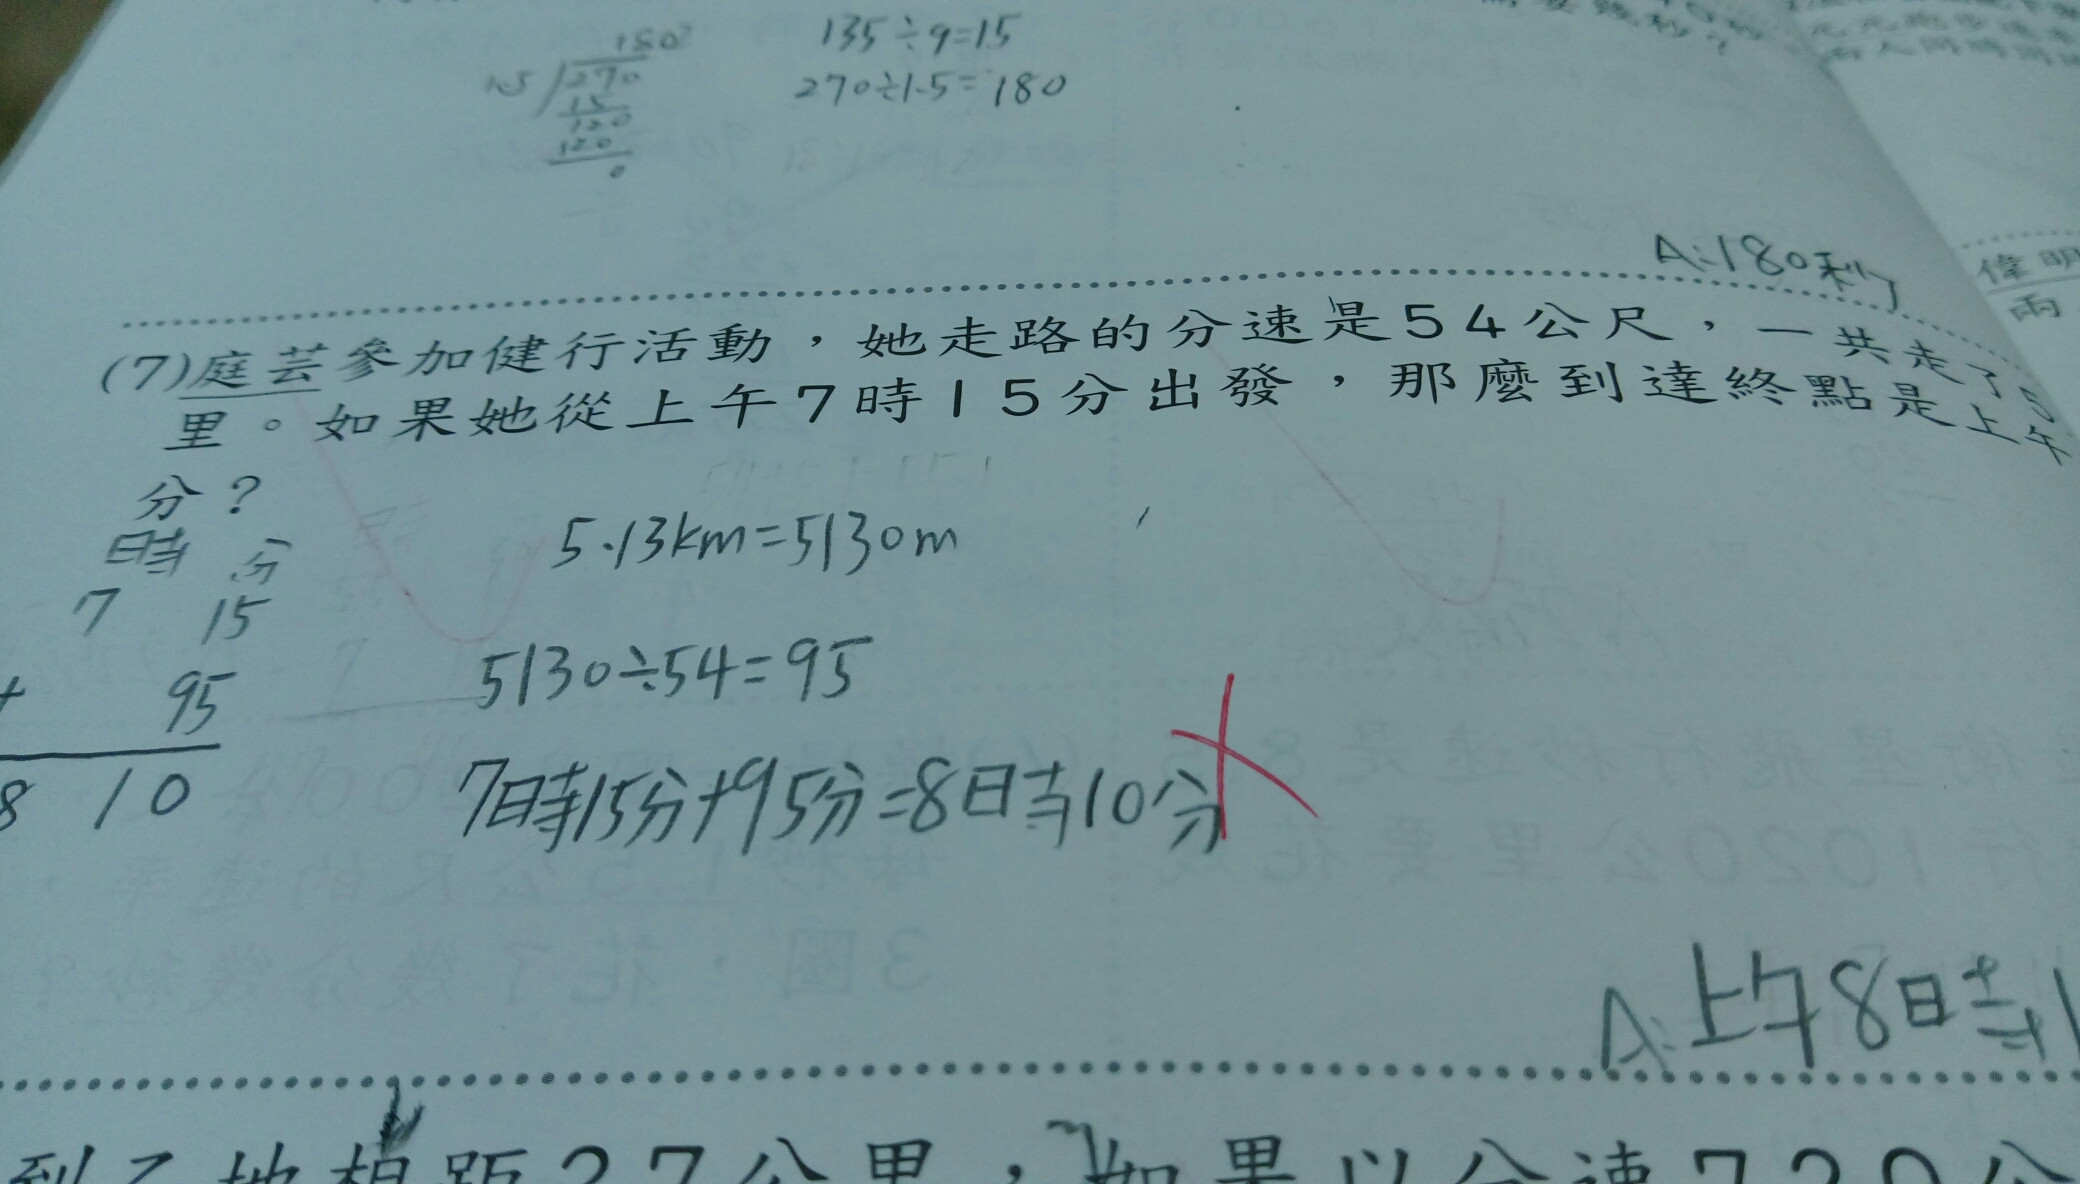 180
1.5 270
15
120
120
0
135÷9=15
270÷1.5=180
A:180秒
(7)庭芸參加健行活動，她走路的分速是54公尺，一共走了5
里。如果她從上午7時15分出發，那麼到達終點是上午
分？
時 分
7 15
+ 95
8 10
5.13km=5130m
5130÷54=95
7時15分+95分=8時10分
A:上午8時1
偉明
兩
到乙地相距27公里，如果以分速720公